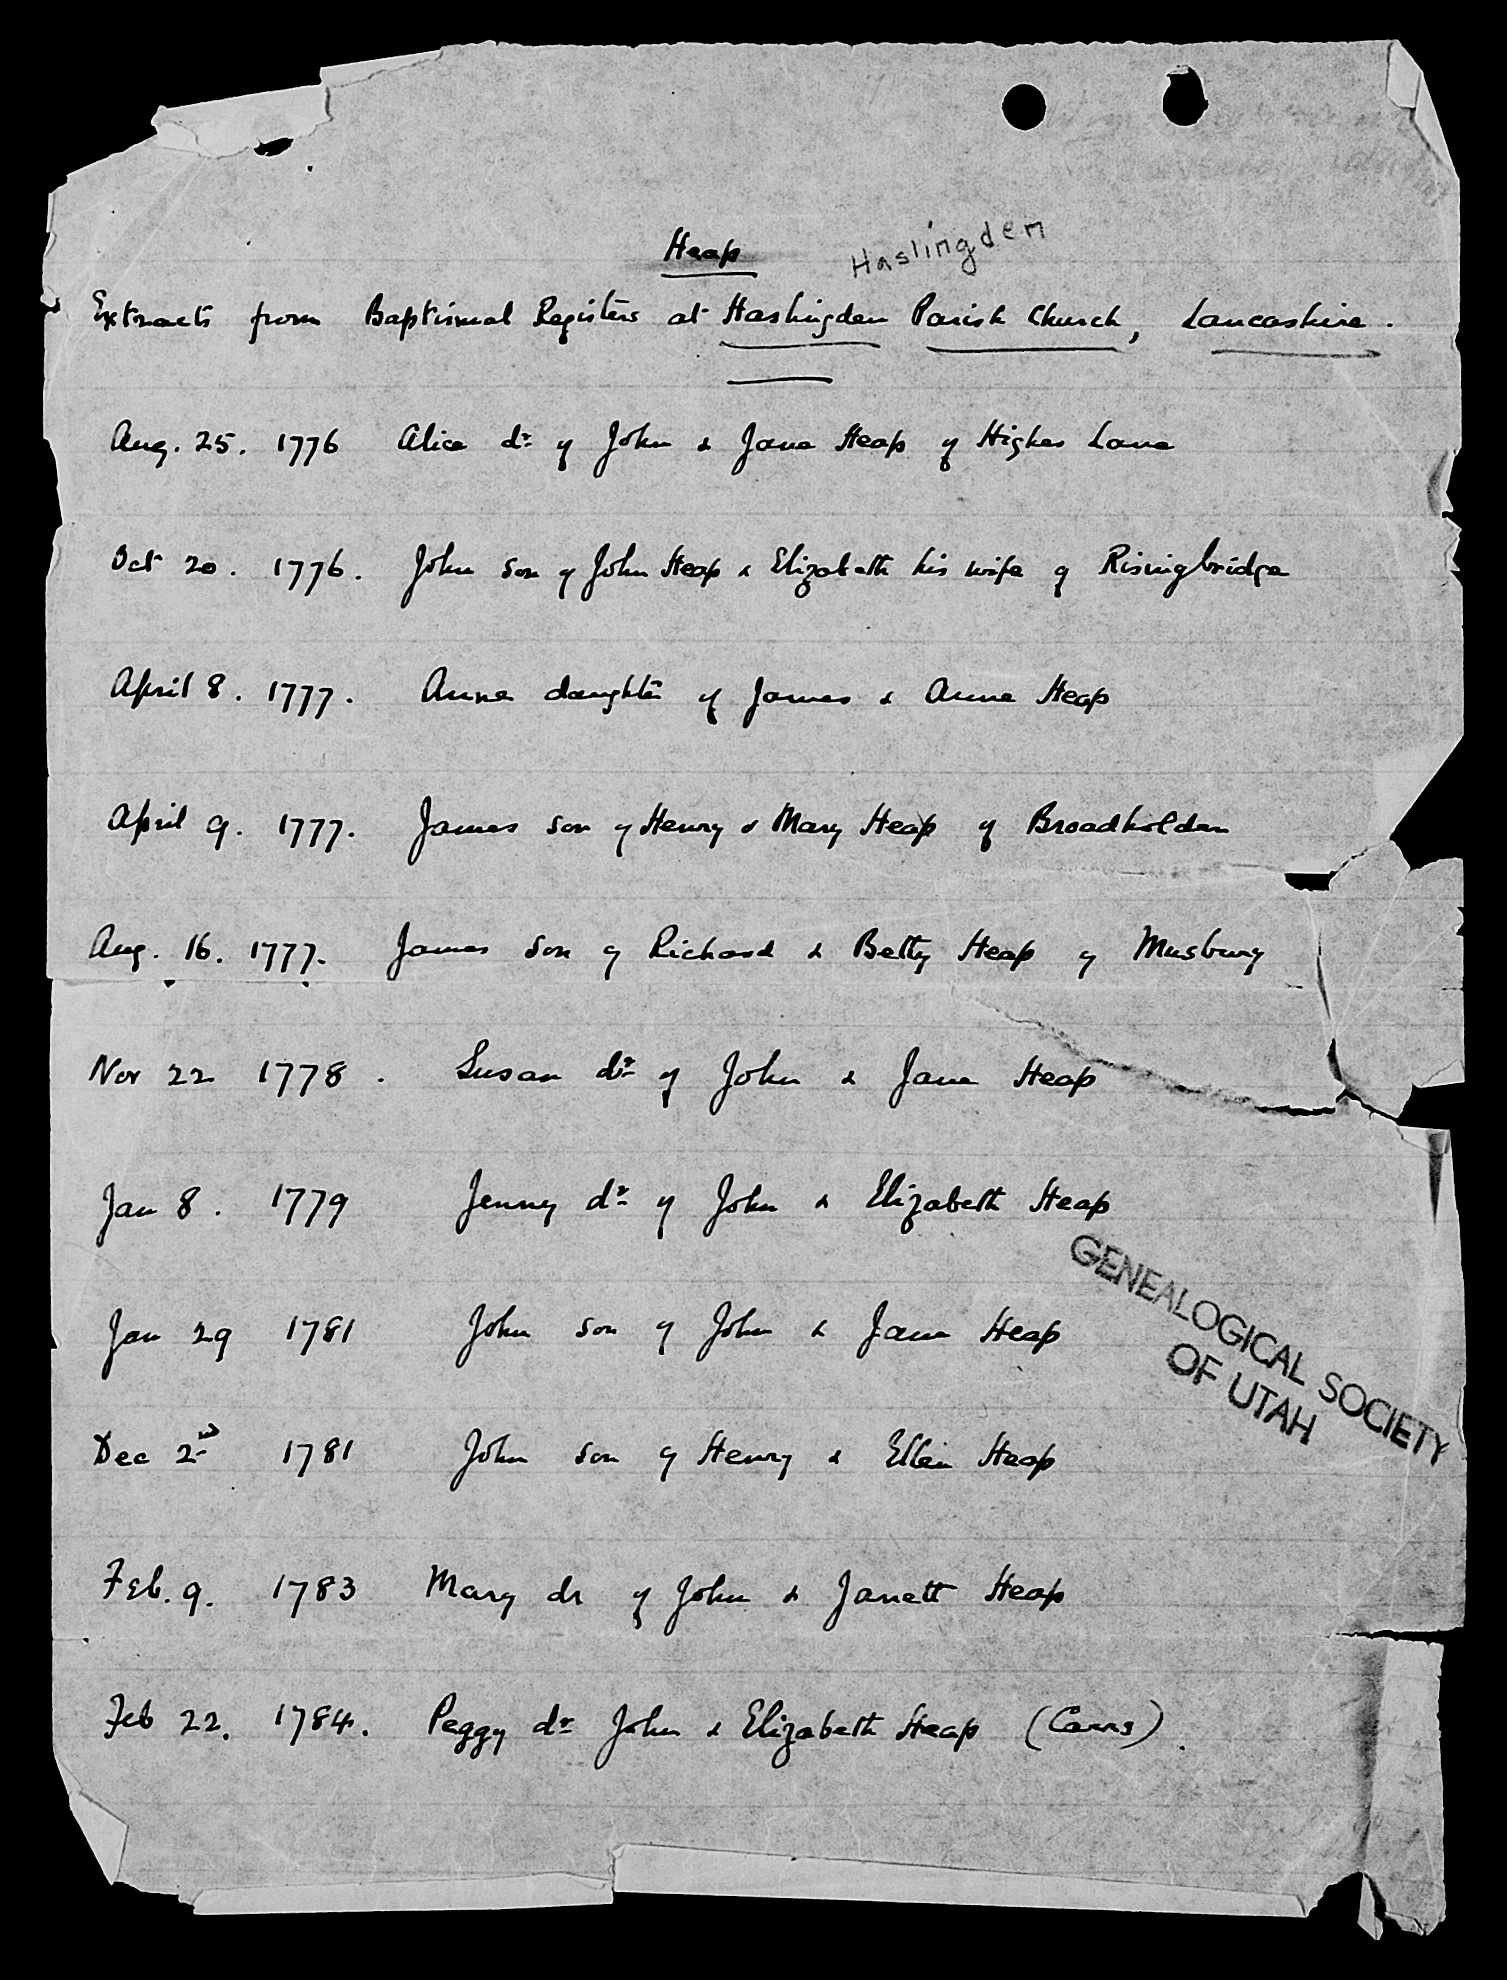 Heap
Haslingden
Extracts from Baptismal Registers at Haslingden Parish Church, Lancashire.
Aug. 25. 1776 Alice dr of John & Jane Heap of Higher Lane
Oct 20. 1776. John son of John Heap & Elizabeth his wife of Risingbridge
April 8. 1777. Anne daughter of James & Anne Heap
April 9. 1777. James son of Henry & Mary Heap of Broadholden
Aug. 16. 1777. James son of Richard & Betty Heap of Musbury
Nov 22 1778. Susan dr of John & Jane Heap
Jan 8. 1779 Jenny dr of John & Elizabeth Heap
Jan 29 1781 John son of John & Jane Heap
Dec 2nd 1781 John son of Henry & Ellen Heap
Feb. 9. 1783 Mary dr of John & Janett Heap
Feb 22. 1784. Peggy dr John & Elizabeth Heap (Carrs).
GENEALOGICAL SOCIETY
OF UTAH